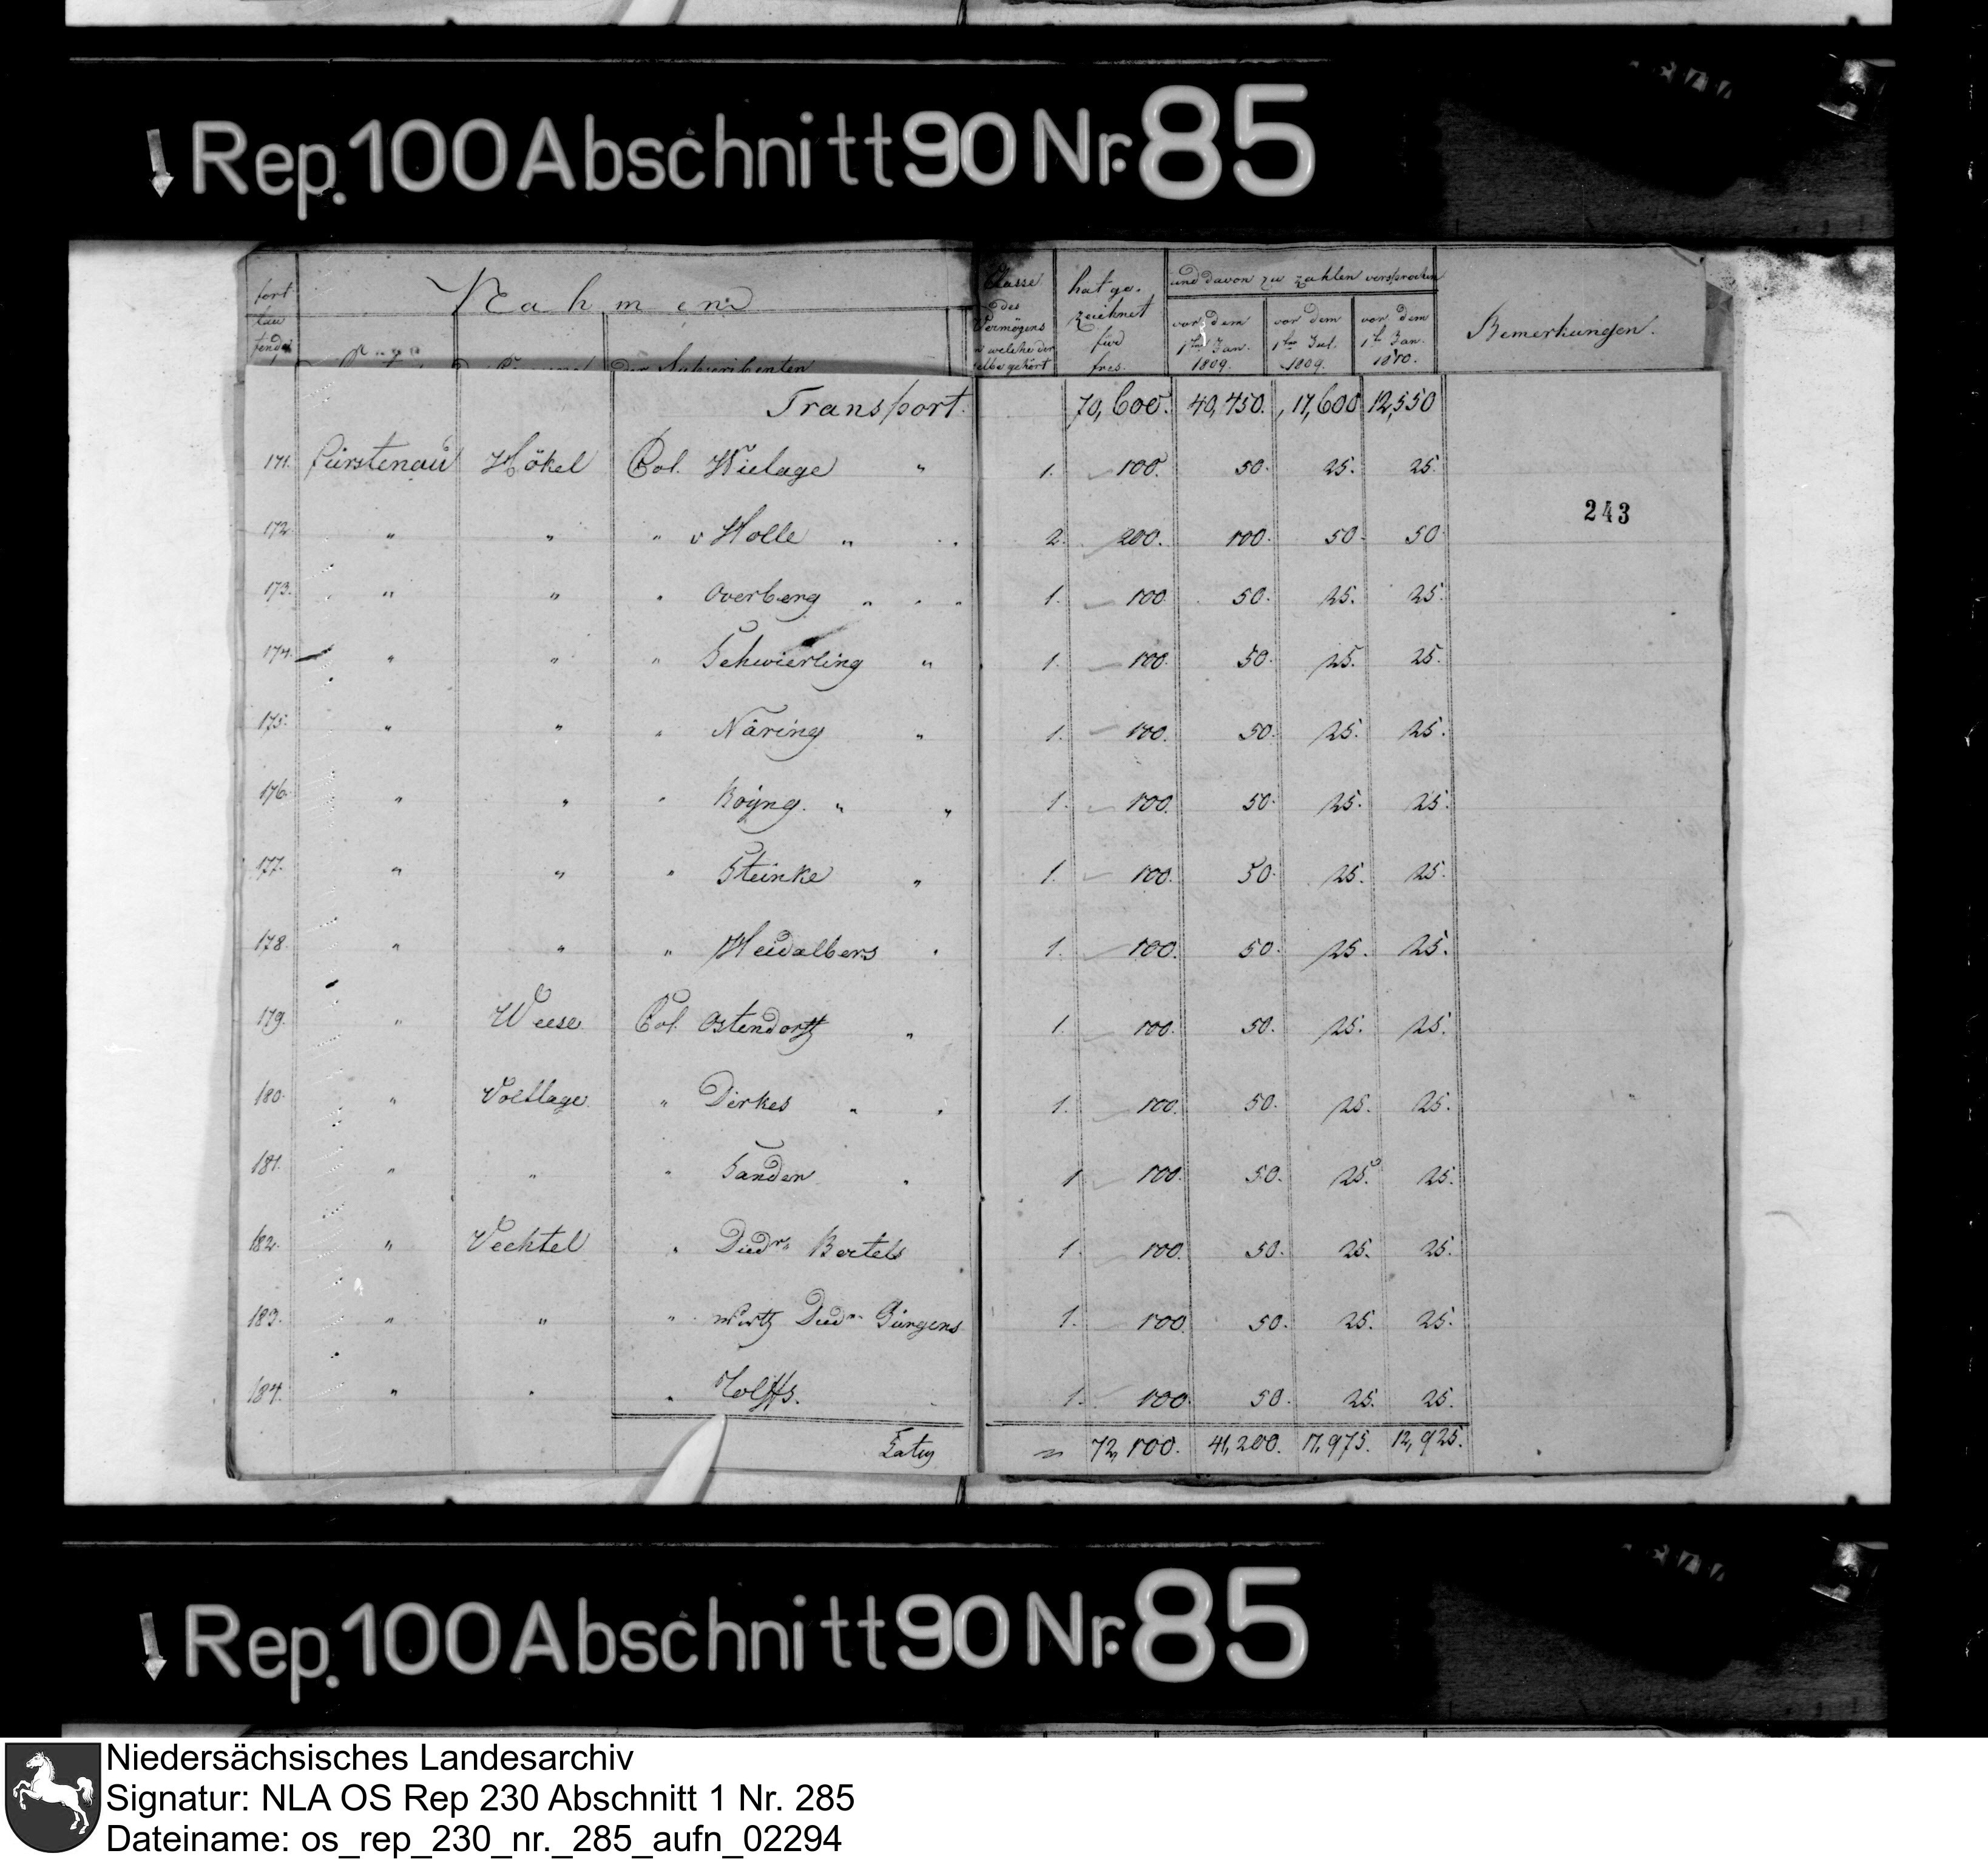 Rep. 100 Abschnitt 90 Nr. 85
fort lau fende
Nahmen
Classe des Vermögens welche der selbe gehört
hat gezeichnet für frcs.
und davon zu zahlen versprochen
vor dem 1ten Jan. 1809.
vor dem 1ten Jul. 1809.
vor dem 1t Jan. 1810.
Bemerkungen.
der Subscribenten
Transport. 70,600. 40,450. 17,600 12,550
171. Fürstenau Höckel Col. Wielage " 1. 100. 50. 25. 25.
243
172. " " " v Holle " 2. 200. 100. 50. 50.
173. " " " Overberg " 1. 100. 50. 25. 25.
174. " " " Schwierling " 1. 100. 50. 25. 25.
175. " " " Näring " 1. 100. 50. 25. 25.
176. " " " " " 1. 100. 50. 25. 25.
177. " " " Steinke " 1. 100. 50. 25. 25.
178. " " " Heidalbers " 1. 100. 50. 25. 25.
179. " Weese Col. Ostendorff " 1. 100. 50. 25. 25.
180. " Voltlage " Dirkes " " 1. 100. 50. 25. 25.
181. " " " Sanden " 1 100. 50. 25. 25.
182. " Vechtel " Diedr. Bertels 1. 100. 50. 25. 25.
183. " " " Diedr. Jürgens 1. 100. 50. 25. 25.
184. " " " 1. 100. 50. 25. 25.
Latus 72,100. 41,200. 17,975. 12,925.
Rep. 100 Abschnitt 90 Nr. 85
Niedersächsisches Landesarchiv
Signatur: NLA OS Rep 230 Abschnitt 1 Nr. 285
Dateiname: os_rep_230_nr._285_aufn_02294